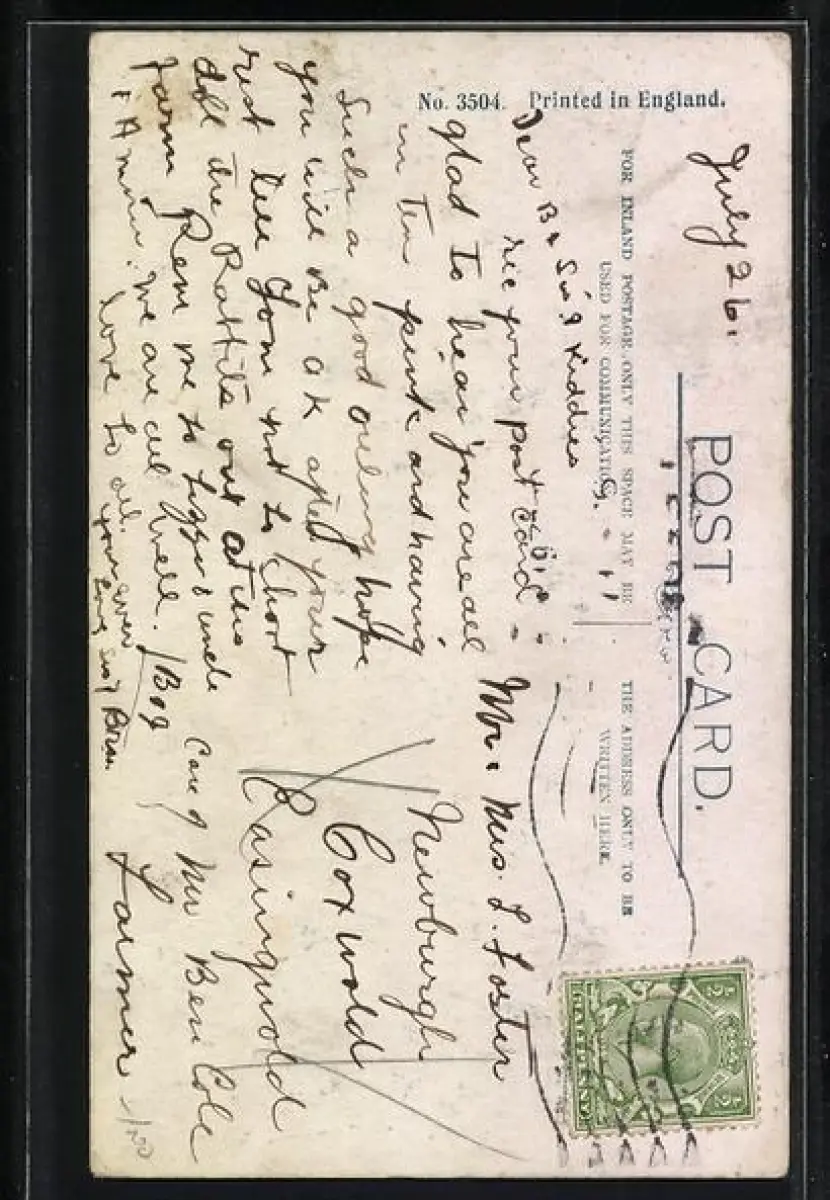 No. 3504. Printed in England.
POST CARD.
FOR INLAND POSTAGE ONLY THIS SPACE MAY BE
USED FOR COMMUNICATION.
THE ADDRESS ONLY TO BE
WRITTEN HERE.
July 26.
Dear B & Sis & Kiddies
rec your post card
glad to hear you are all
in the pink and having
such a good outing hope
you will be ok after your
rest tell Tom not to shoot
all the Rabbits out at the
Farm Rem me to Lizzy & uncle
& Annie. We are all well.
love to all.
your ever
Mr & Mrs. L. Foster
Newburgh
Coxwold
Easingwold
Care of Mr Ben Cole
Farmer
HALFPENNY
½ ½